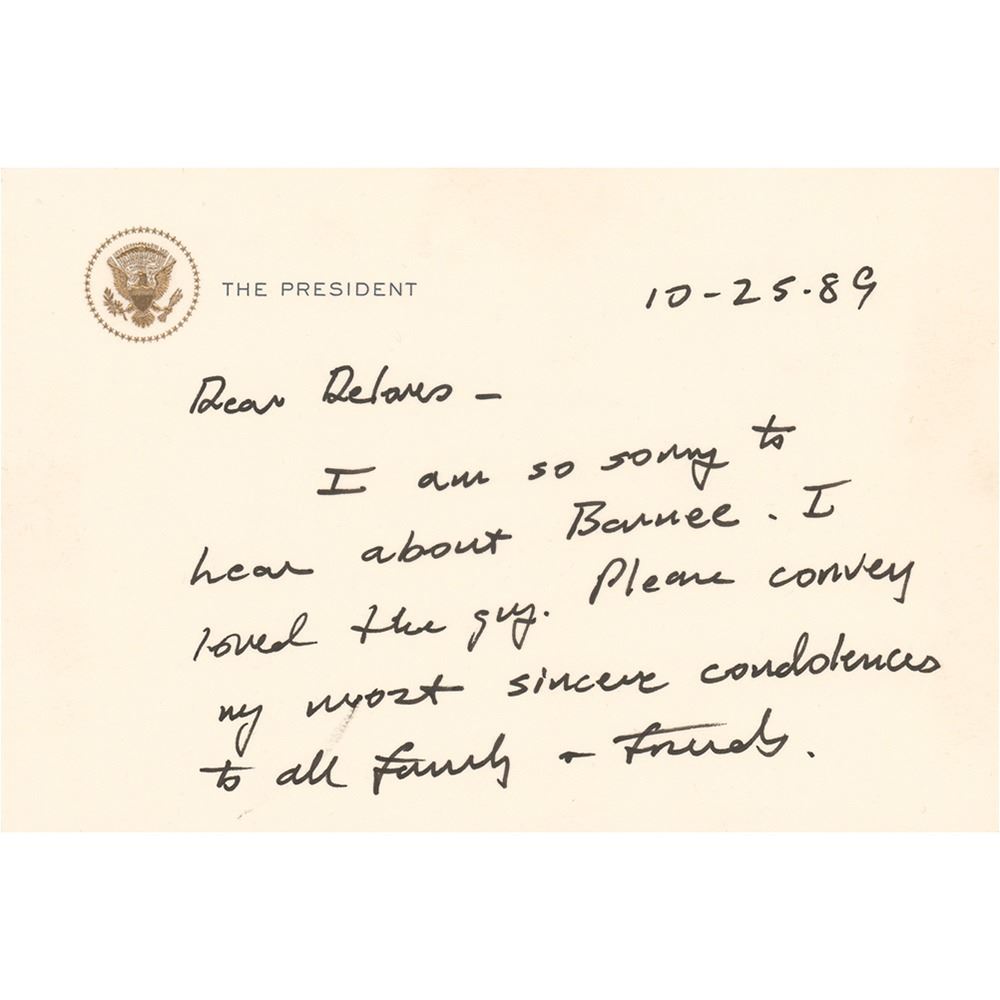 THE PRESIDENT
10-25-89
Dear Delores -
I am so sorry to
hear about Barnee. I
loved the guy. Please convey
my most sincere condolences
to all family + friends.